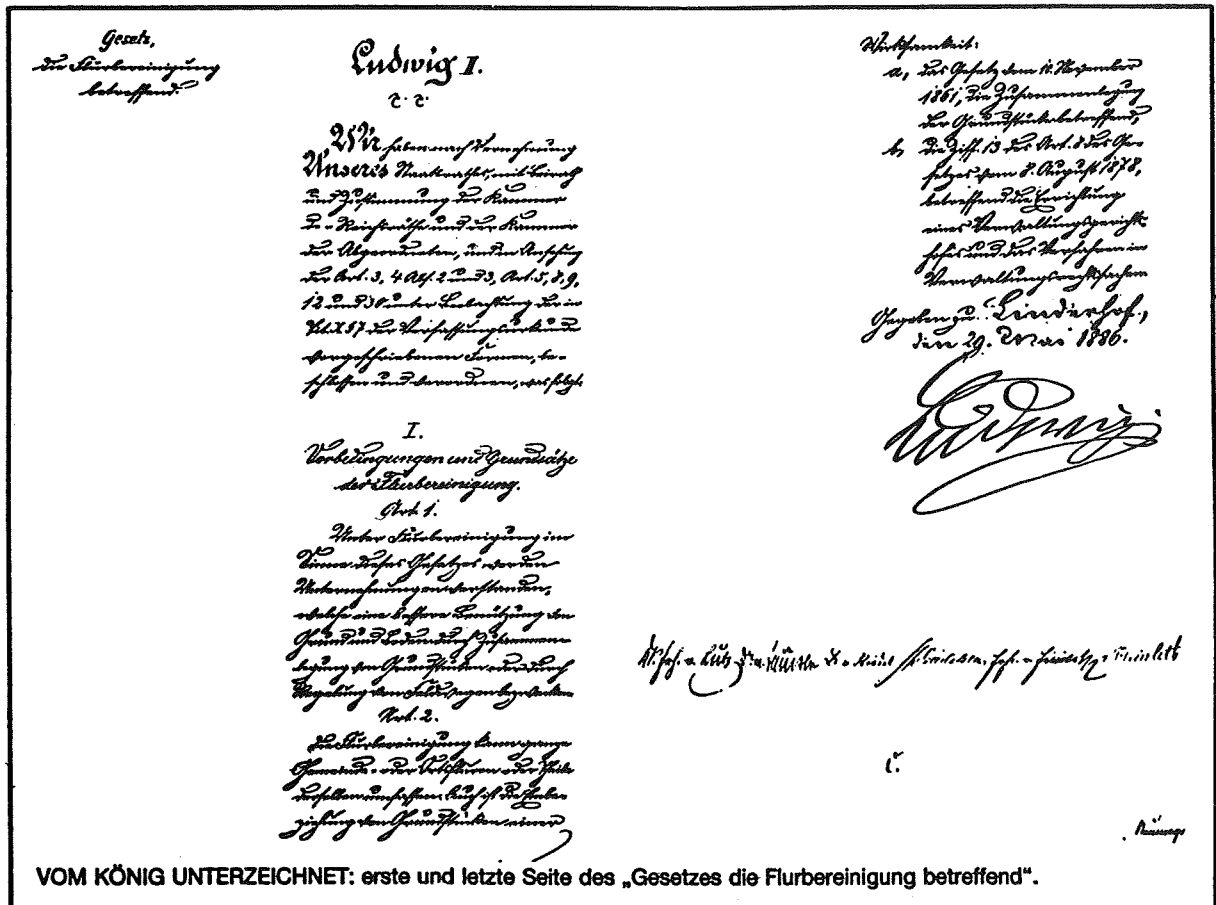 Gesetz,
die Flurbereinigung
betreffend.
Ludwig I.
Wir haben nach Vernehmung
Unseres Staatsraths, mit Beirath
und Zustimmung der Kammer
der Reichsräthe und der Kammer
der Abgeordneten, und in Ansehung
der Art. 3, 4 Abs. 2 und 3, Art. 5, 8, 9,
12 und 30 unter Beobachtung der in
Tit. X § 7 der Verfassungsurkunde
vorgeschriebenen Formen, be-
schlossen und verordnen, was folgt:
I.
Vorbedingungen und Grundsätze
der Flurbereinigung.
Art. 1.
Unter Flurbereinigung im
Sinne dieses Gesetzes werden
Unternehmungen verstanden,
welche eine bessere Benützung von
Grund und Boden durch Zusammen-
legung von Grundstücken oder durch
Regelung von Feldwegen bezwecken.
Art. 2.
Die Flurbereinigung kann ganze
Gemeinde- oder Ortsfluren oder Theile
derselben umfassen. Auch ist die Einbe-
ziehung von Grundstücken einer
Wirksamkeit:
a, das Gesetz vom 10. November
1861, die Zusammenlegung
der Grundstücke betreffend,
b, die Ziff. 13 des Art. 8 des Ge-
setzes vom 8. August 1878,
betreffend die Errichtung
eines Verwaltungsgerichts-
hofes und das Verfahren in
Verwaltungsrechtssachen
Gegeben zu Linderhof,
den 29. Mai 1886.
Ludwig
Dr. Frh. v. Lutz
VOM KÖNIG UNTERZEICHNET: erste und letzte Seite des „Gesetzes die Flurbereinigung betreffend“.